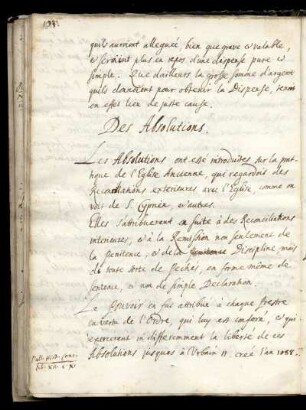 qu'ils auroient alleguée bien que grave & valable,
& seroient plus en repos d'une dispense pure &
simple. Que d'ailleurs la grosse somme d'argent
qu'ils donnoient pour obtenir la Dispense, tenoit
en effet lieu de juste cause.
Des Absolutions.
Les Absolutions ont esté introduites sur la prat-
tique de l'Eglise Ancienne, qui regardoit des
Reconciliations exterieures avec l'Eglise, comme on
voit de S. Cyprien, & autres.
Elles s'attribuerent en suite à des Reconciliations
interieures, & à la Remission non seulement de
la penitence, & de la Discipline mais
de toute sorte de pechez, en forme même de
sentence, & non de simple Declaration.
Le pouvoir en fut attribué à chaque Prestre
en vertu de l'Ordre, qui luy est conferé, & qui
exercerent indifferemment la liberté de ces
Absolutions jusques à Urbain II. creé l'an 1088.